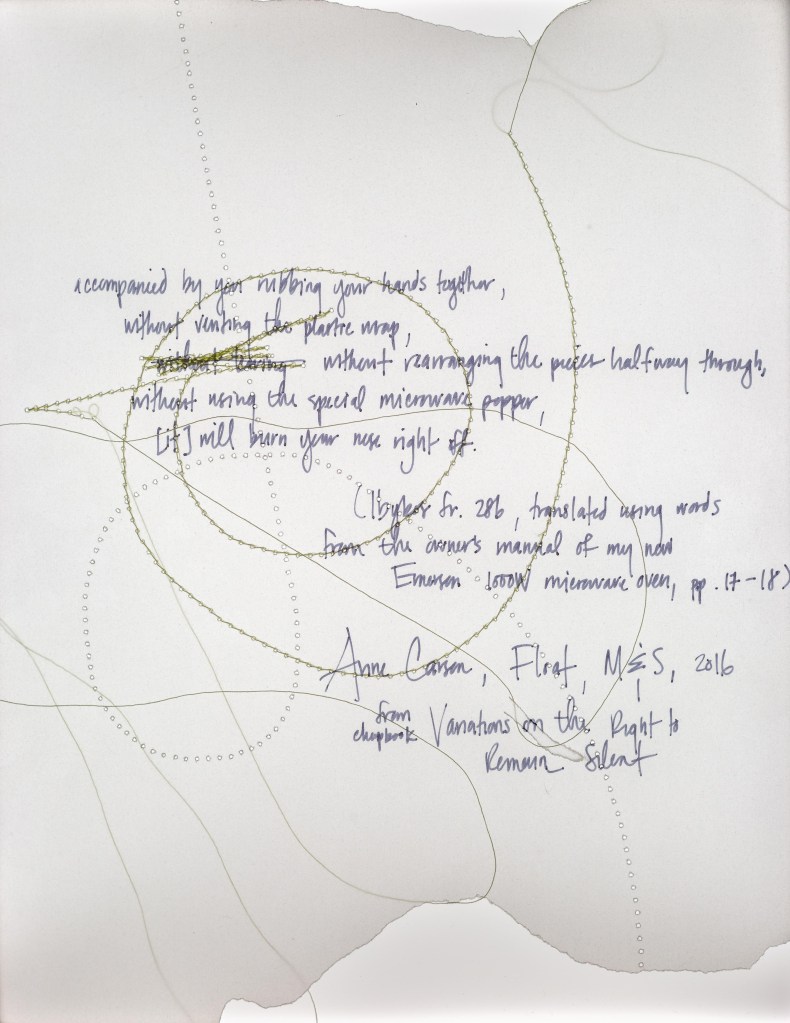 accompanied by you rubbing your hands together,
without venting the plastic wrap,
without rearranging the pieces halfway through,
without using the special microwave popper,
[it] will burn your nose right off.
(Ibykos fr. 286, translated using words
from the owner's manual of my new
Emerson 1000W microwave oven, pp. 17-18)
Anne Carson, Float, M&S, 2016
from chapbook Variations on the Right to
Remain Silent